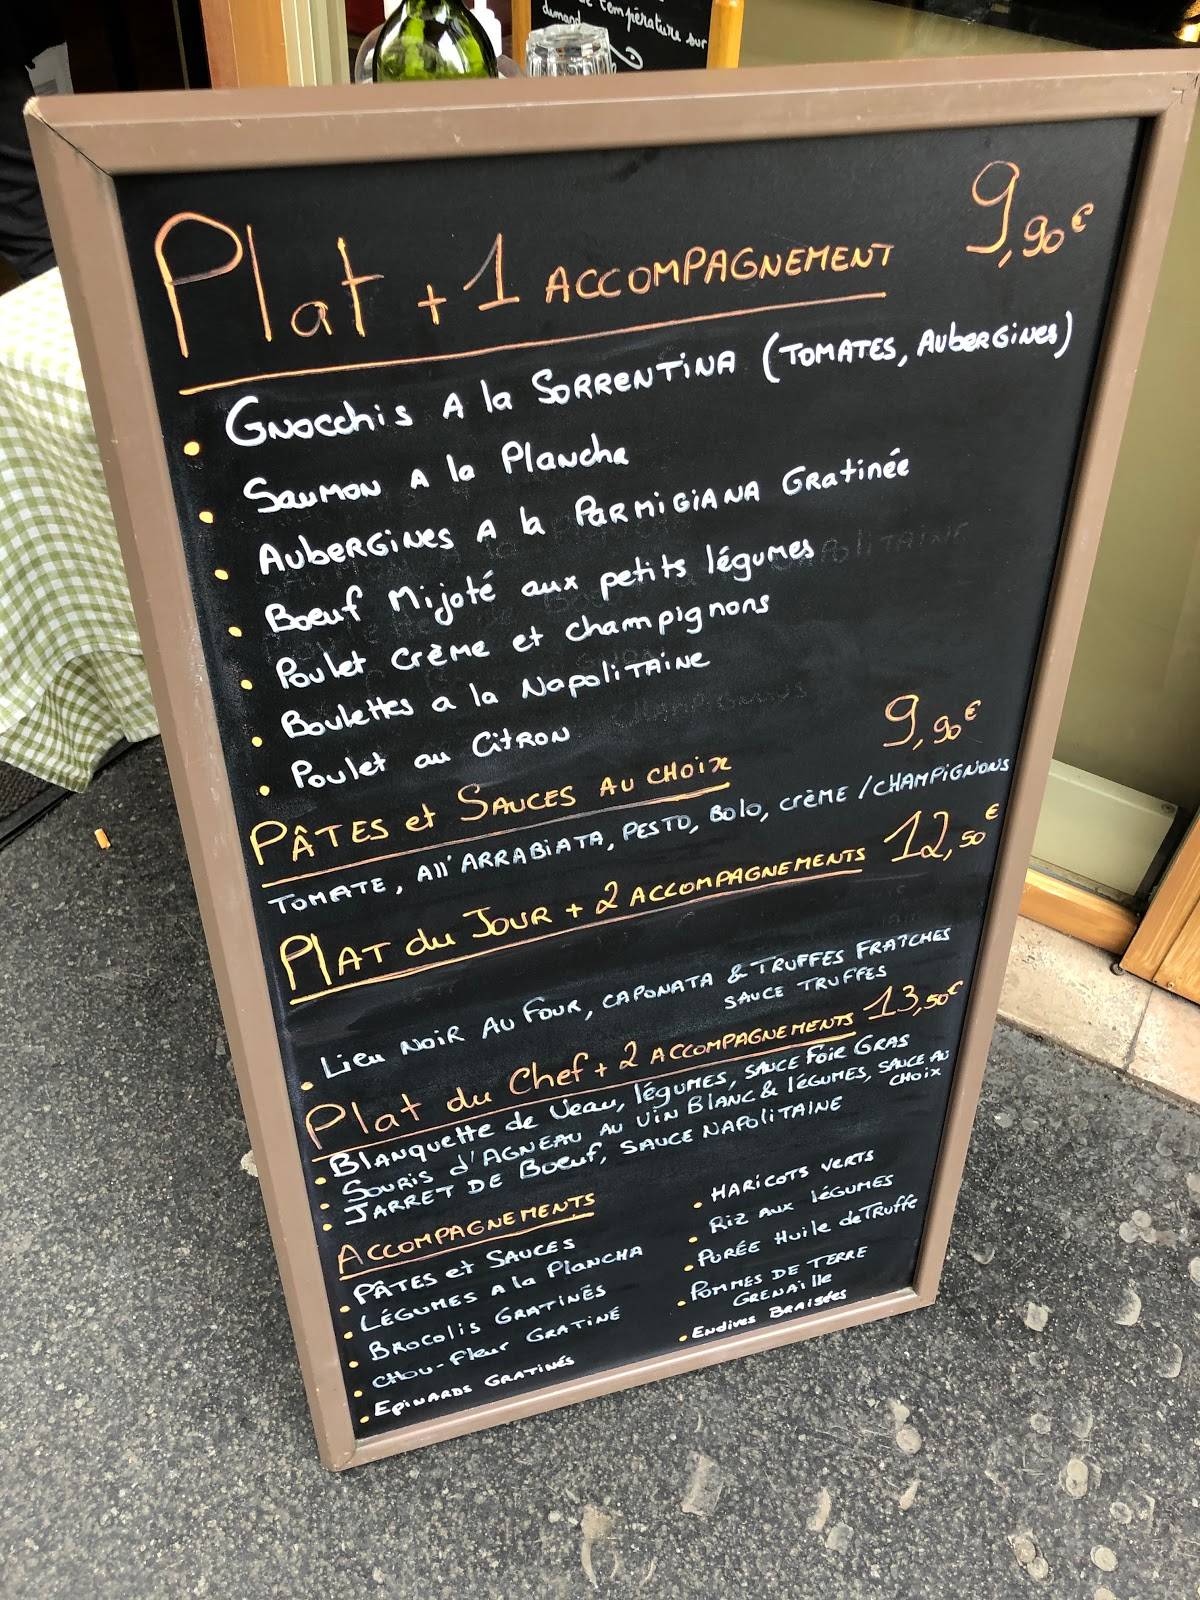 température sur
demand
Plat + 1 ACCOMPAGNEMENT 9,90€
• GNocchis A la SORRENTINA (TOMATES, AubERGiNes)
• SAUMON A la Plancha
• AubERGiNes A la PARMiGiANA GRatinée
• Boeuf Mijoté aux petits légumes
• Poulet CrèMe et champignons
• Boulettes a la NapoliTAiNe
• Poulet au CitRON
PÂTES et SAUCES AU CHOix 9,90€
TOMATE, All'ARRABiATA, PESTO, Bolo, CRèME / CHAMPiGNONS
PlAT du JOUR + 2 ACCOMPAGNEMENTS 12,50€
• Lieu NOiR AU FOUR, CAPONATA & TRUFFES FRAÎCHES
SAUCE TRUFFES
Plat du Chef + 2 ACCOMPAGNEMENTS 13,50€
• BlANQuette de Veau, légUMES, SAUCE FOiE GRAS
• SOURiS d'AGNEAU AU ViN BlANC & léGUMES, SAUCE AU
CHOix
• JARRET DE Boeuf, SAUCE NAPOliTAINE
ACCOMPAGNEMENTS
• PÂTES et SAUCES
• LÉGUMES A la PlANCHA
• BROCOLiS GRATiNÉS
• CHOU-Fleur GRATiNÉ
• EpiNARDS GRATiNÉS
• HARiCOTS VeRTS
• Riz AUX léGUMES
• PURÉE Huile deTRuffe
• POMMES DE TERRE
GRENAille
• Endives BRAiSées